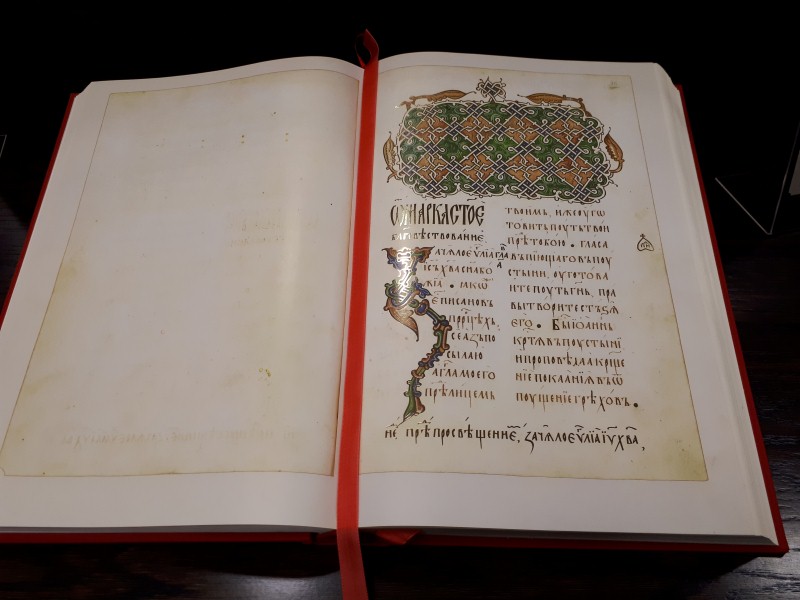 Ѿ МАРКА СТОЕ
БЛГОВѢСТВОВАНИЕ
ЗАЧЯЛО ЕУЛИА
ІСЪ ХВА СНА БО
ЖИА • ІАКѠ
Е ПИСАНО ВЪ
ПРРЦѢХЪ
СЕ АЗЪ ПО
СЫЛАЮ
АГГЛА МОЕГО
ПРЕ ЛИЦЕМЬ
ТВОИМЬ, ИЖЕ УГѠ
ТОВИТЬ ПОУТЬ ТВОИ
ПРЕ ТОБОЮ • ГЛАСА
ВЪПИЮЩАГО ВЪ ПОУ
СТЫНИ, ОУГОТОВА
ИТЕ ПОУТЬ ГНЬ, ПРА
ВЫ ТВОРИТЕ СТЬЗѦ
ЕГО • БЫ ІОАННЬ
КРТѦ ВЪ ПОУСТЫНИ
И ПРОПОВѢДАА КРЩЕ
НІЕ ПОКААНІА ВЪ Ѡ
ПОУЩЕНИЕ ГРѢХОВЪ •
НЕ ПРЕ ПРОСВѢЩЕНИЕ, ЗАЧЯЛО ЕУЛІА ІУ ХВА,